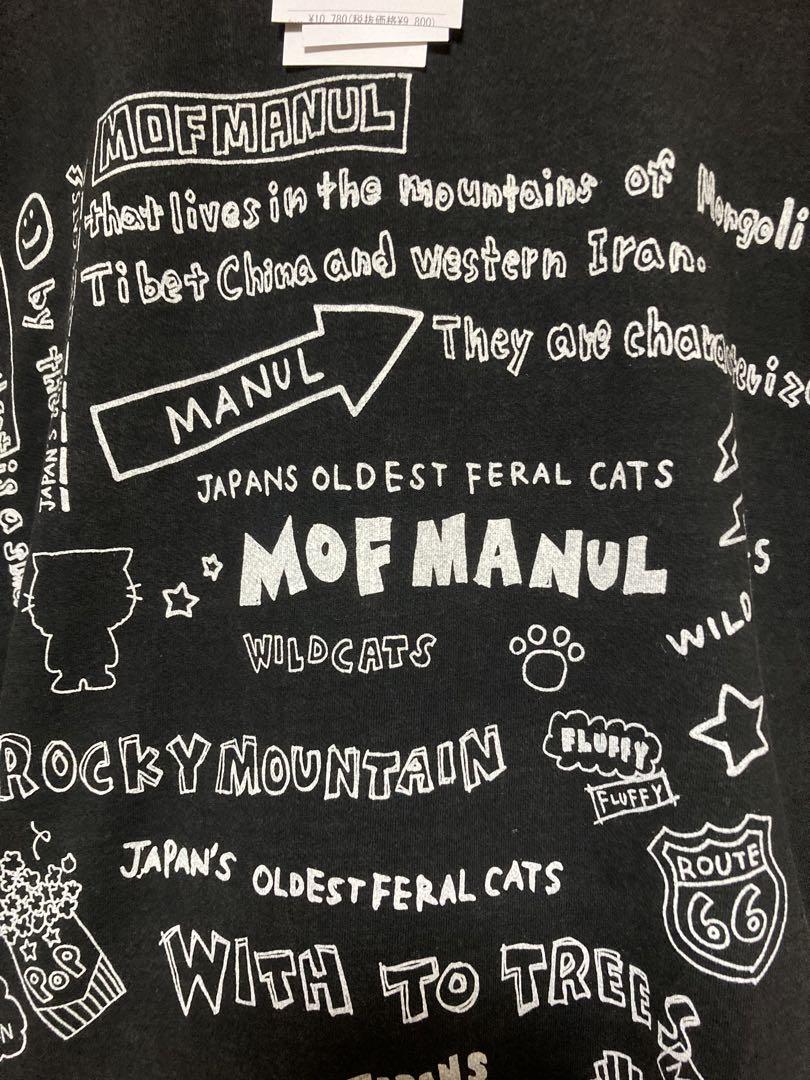 ¥10,780(税抜価格¥9,800)
MOFMANUL
that lives in the mountains of Mongoli
Tibet China and western Iran.
They are characteriz
MANUL
by
JAPAN'S
JAPANS OLDEST FERAL CATS
MOFMANUL
WILDCATS
WILD
S
ROCKY MOUNTAIN
FLUFFY
FLUFFY
JAPAN'S OLDEST FERAL CATS
ROUTE
66
POP
WITH TO TREES